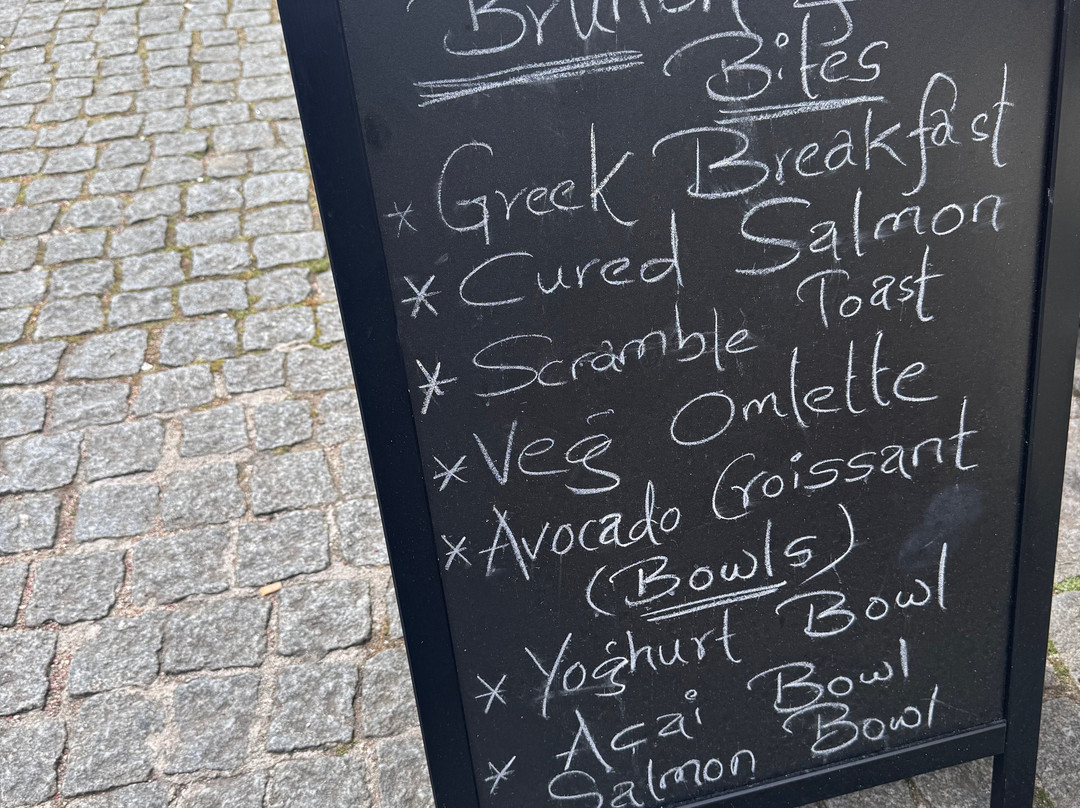 Brunch &
Bites
* Greek Breakfast
* Cured Salmon
* Scramble Toast
* Veg Omlette
* Avocado Croissant
(Bowls)
* Yoghurt Bowl
* Açai Bowl
Salmon Bowl